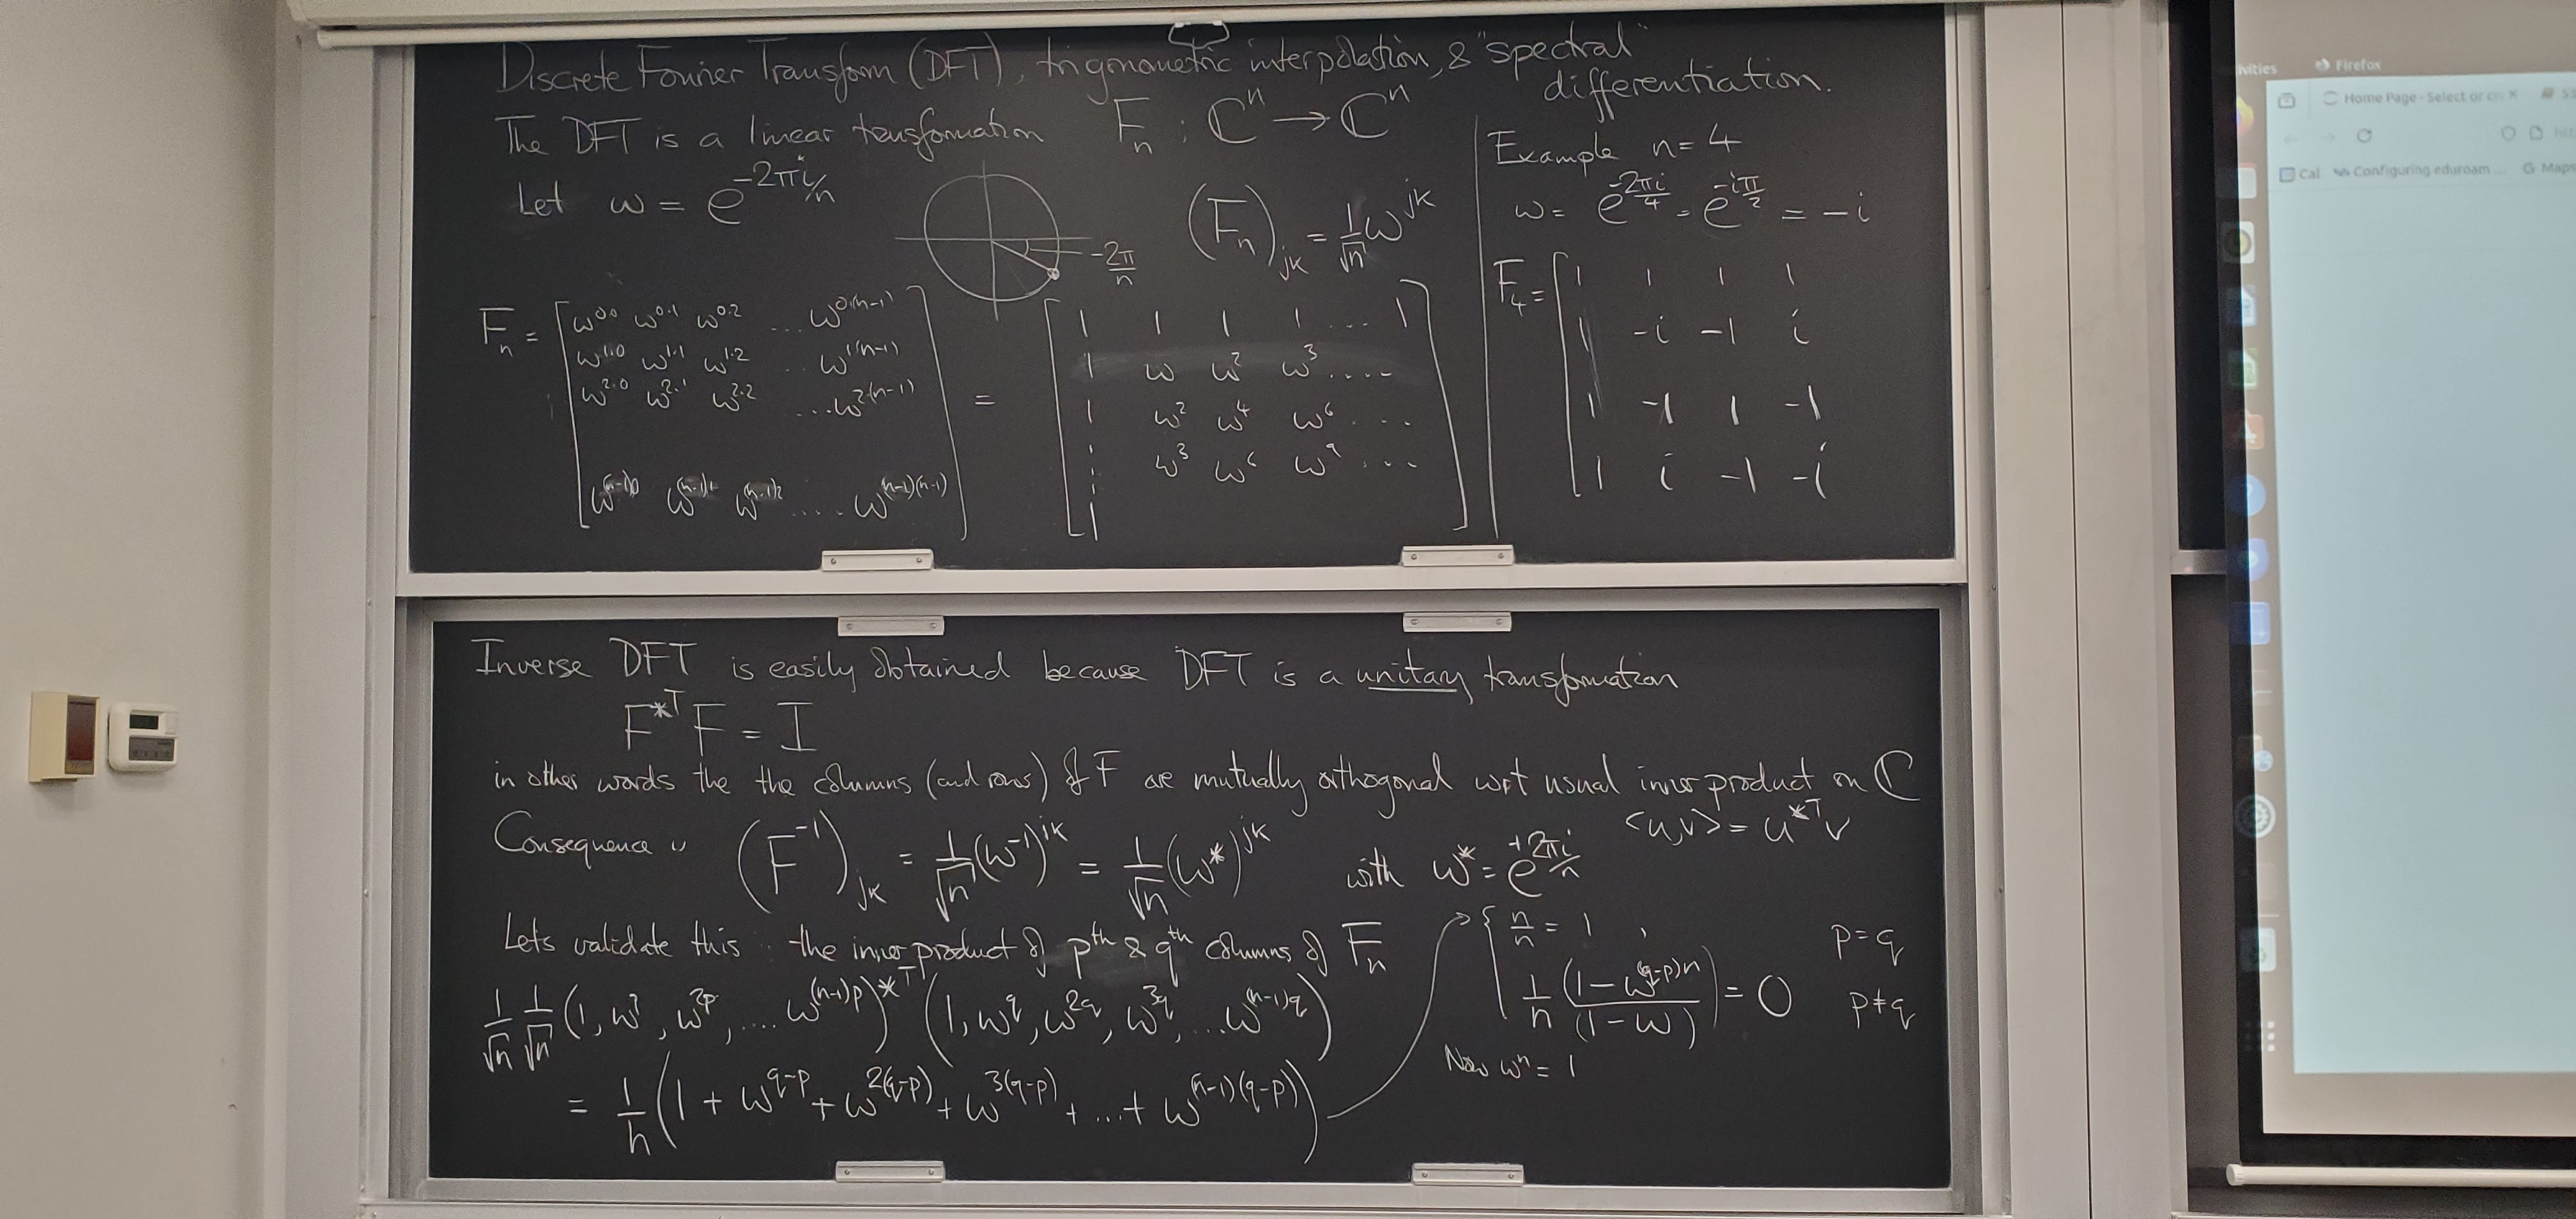 Discrete Fourier Transform (DFT), trigonometric interpolation, & "spectral" differentiation.
The DFT is a linear transformation Fₙ : ℂⁿ → ℂⁿ
Let ω = e^(-2πi/n)
-2π/n
(Fₙ)_jk = 1/√n ω^jk
Fₙ = [ ω^0·0 ω^0·1 ω^0·2 ... ω^0(n-1)
ω^1·0 ω^1·1 ω^1·2 .. ω^1(n-1)
ω^2·0 ω^2·1 ω^2·2 ... ω^2(n-1)
ω^(n-1)0 ω^(n-1)1 ω^(n-1)2 .... ω^(n-1)(n-1) ]
= [ 1 1 1 1 ... 1
1 ω ω² ω³ ....
1 ω² ω⁴ ω⁶ ...
ω³ ω⁶ ω⁹ ...
1 ]
Example n = 4
ω = e^(-2πi/4) = e^(-iπ/2) = -i
F₄ = [ 1 1 1 1
1 -i -1 i
1 -1 1 -1
1 i -1 -i
Inverse DFT is easily obtained because DFT is a unitary transformation
F^*T F = I
in other words the the columns (and rows) of F are mutually orthogonal wrt usual inner product on ℂ
<u,v> = u^*T v
Consequence is (F^-1)_jk = 1/√n (ω^-1)^jk = 1/√n (ω*)^jk with ω* = e^(+2πi/n)
Lets validate this : the inner product of pth & qth columns of Fₙ
1/√n 1/√n (1, ω^p, ω^2p, .... ω^(n-1)p)^*T (1, ω^q, ω^2q, ω^3q, ... ω^(n-1)q)
= 1/n (1 + ω^(q-p) + ω^2(q-p) + ω^3(q-p) + ... + ω^(n-1)(q-p))
{ n/n = 1 , p = q
1/n (1 - ω^(q-p)n)/(1 - ω) = 0 p ≠ q
Now ωⁿ = 1
Firefox
Home Page - Select or
Cal Configuring eduroam ... Maps